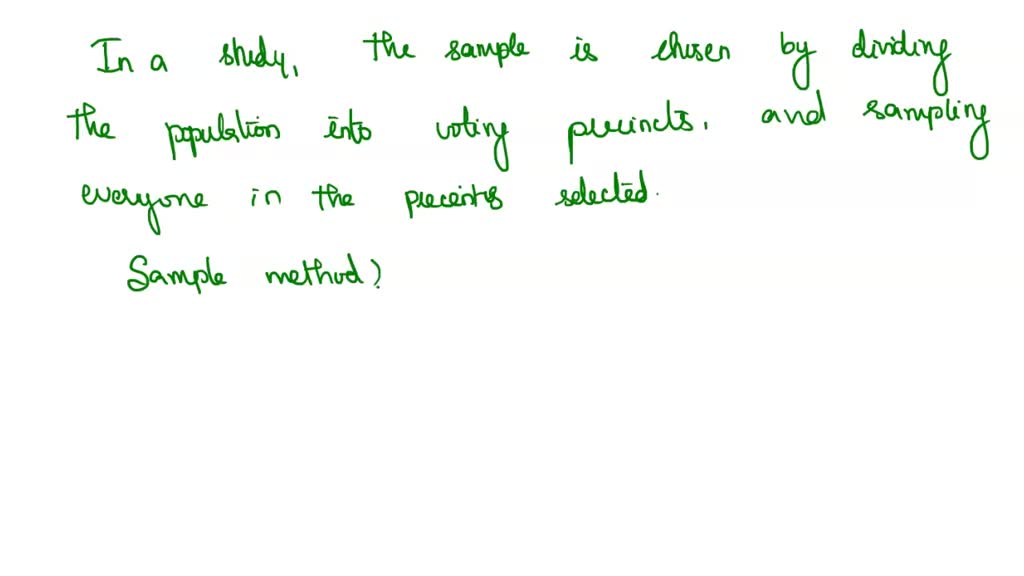 In a study, the sample is chosen by dividing
the population into voting precincts, and sampling
everyone in the precints selected.
Sample method?